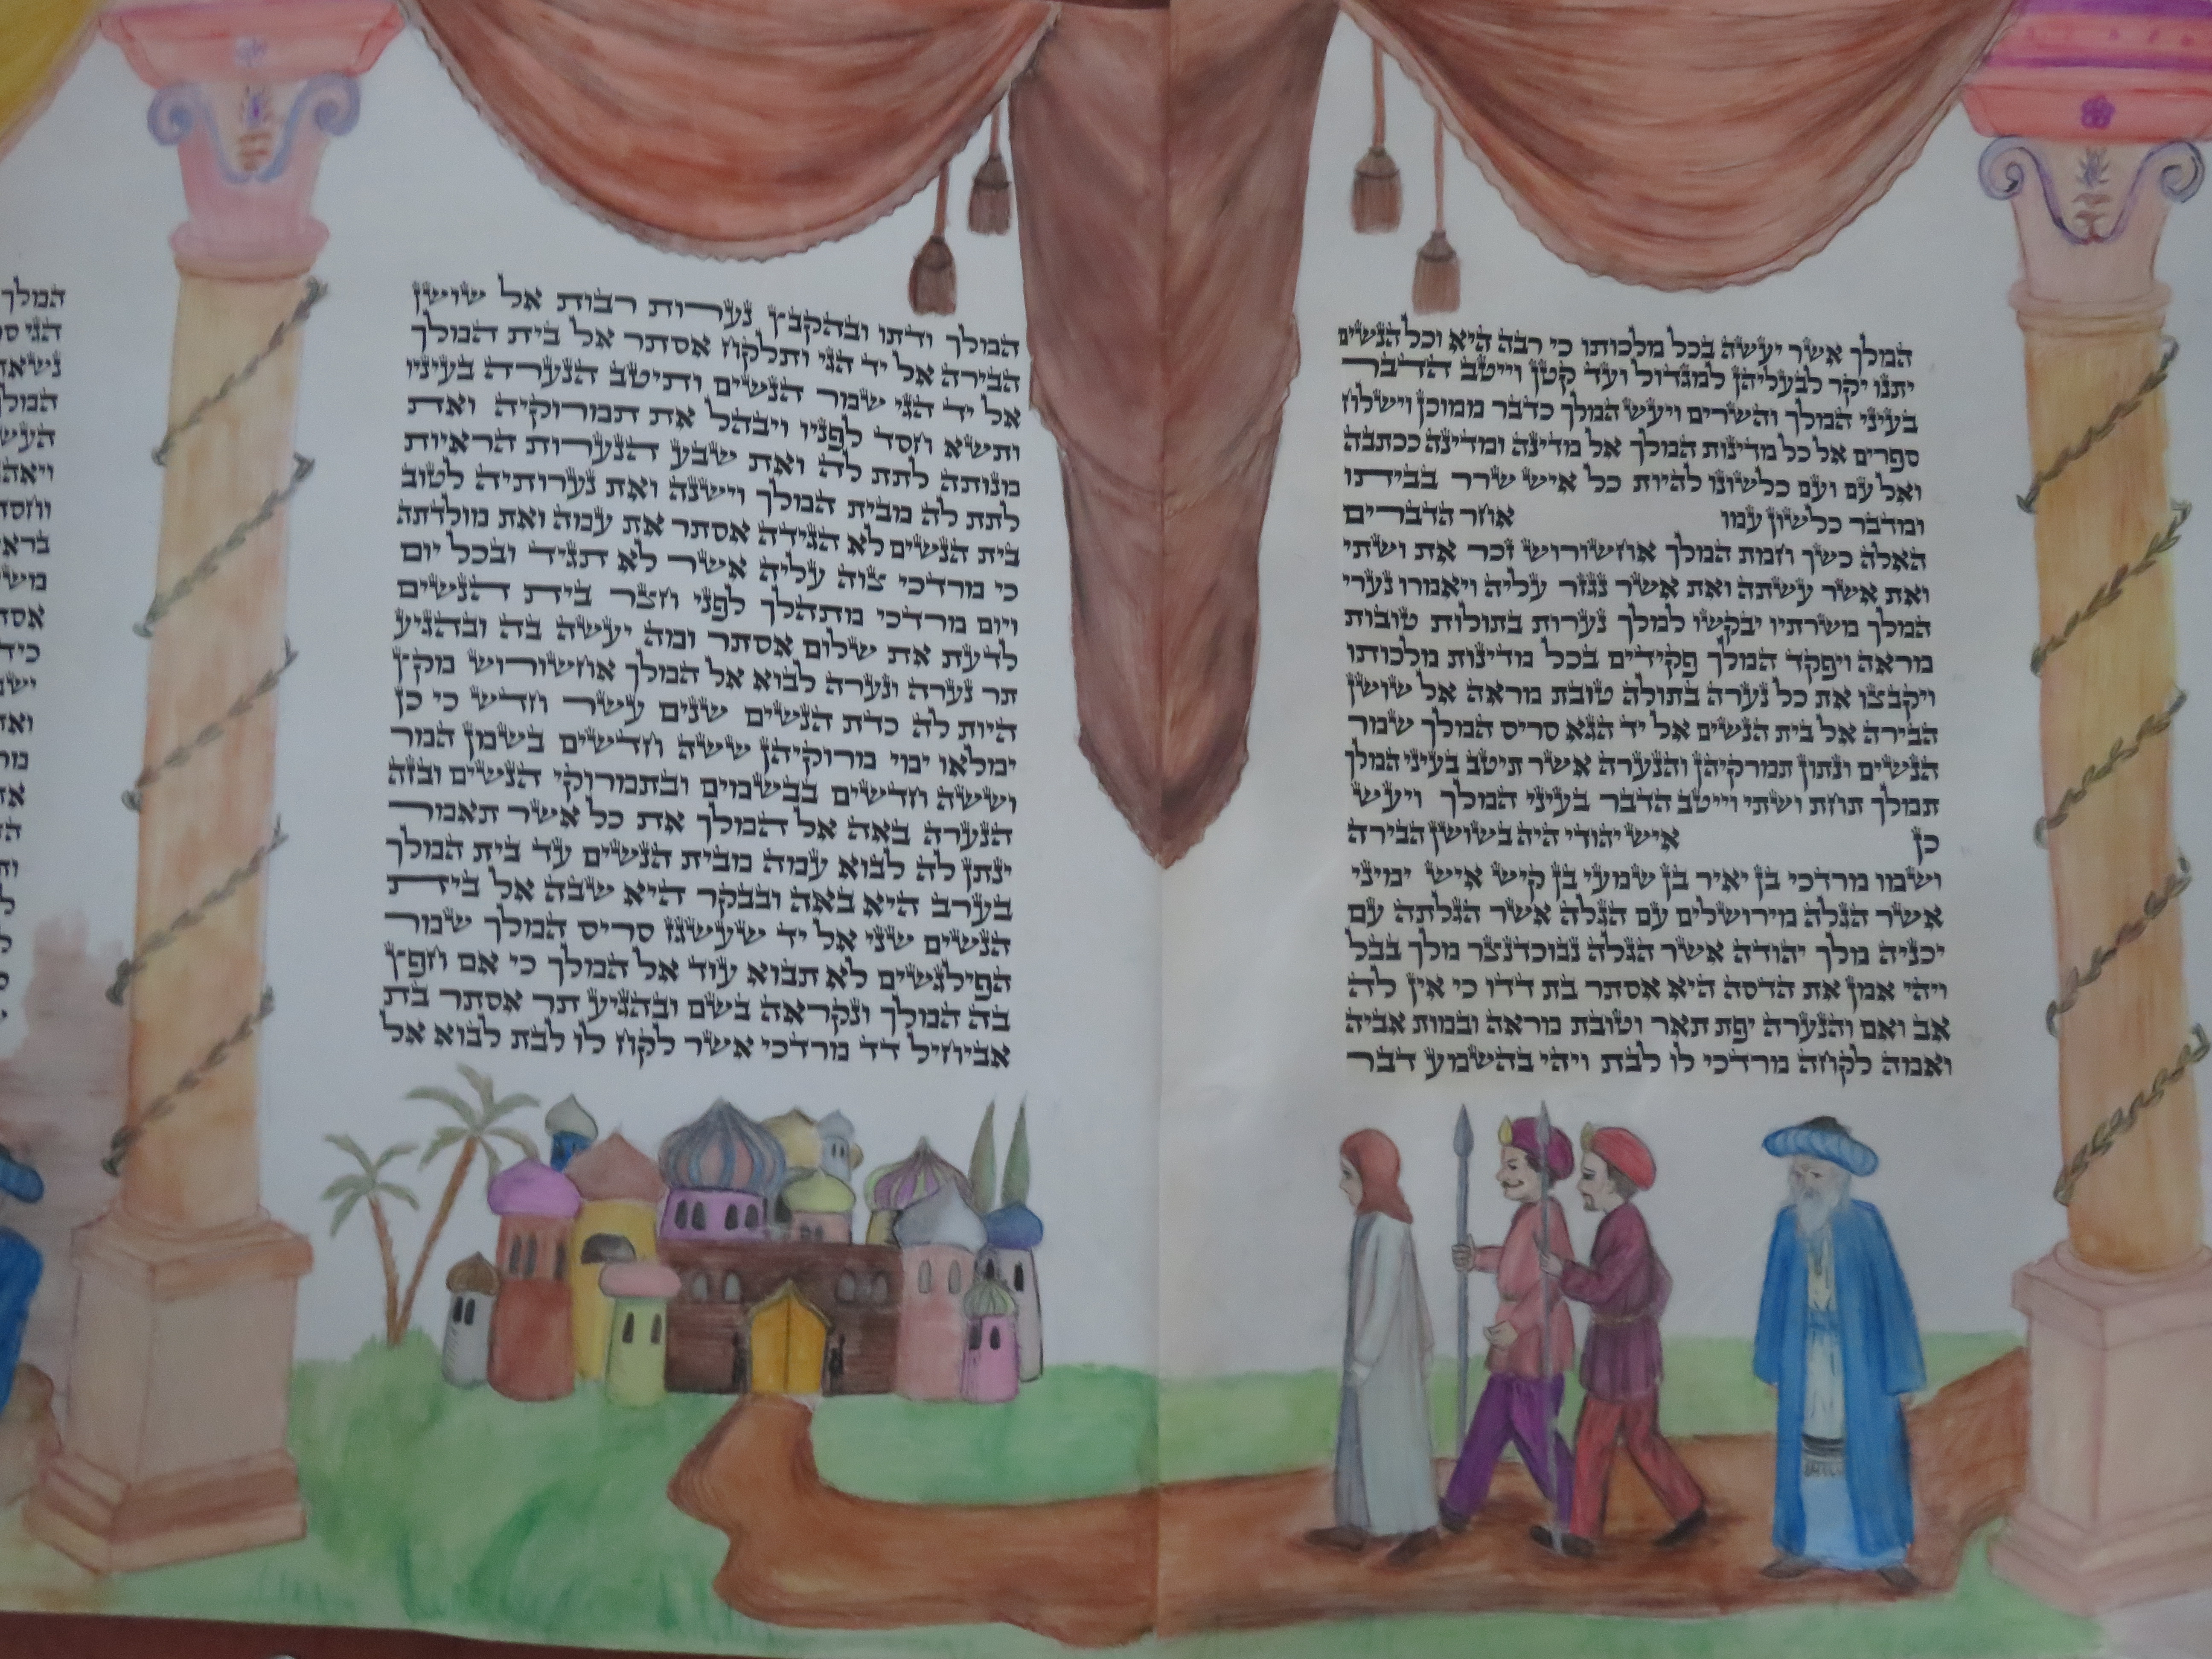 המלך אשר יעשה בכל מלכותו כי רבה היא וכל הנשים
יתנו יקר לבעליהן למגדול ועד קטן וייטב הדבר
בעיני המלך והשרים ויעש המלך כדבר ממוכן וישלח
ספרים אל כל מדינות המלך אל מדינה ומדינה ככתבה
ואל עם ועם כלשונו להיות כל איש שרר בביתו
ומדבר כלשון עמו אחר הדברים
האלה כשך חמת המלך אחשורוש זכר את ושתי
ואת אשר עשתה ואת אשר נגזר עליה ויאמרו נערי
המלך משרתיו יבקשו למלך נערות בתולות טובות
מראה ויפקד המלך פקידים בכל מדינות מלכותו
ויקבצו את כל נערה בתולה טובת מראה אל שושן
הבירה אל בית הנשים אל יד הגא סריס המלך שמר
הנשים ונתון תמרקיהן והנערה אשר תיטב בעיני המלך
תמלך תחת ושתי וייטב הדבר בעיני המלך ויעש
כן איש יהודי היה בשושן הבירה
ושמו מרדכי בן יאיר בן שמעי בן קיש איש ימיני
אשר הגלה מירושלים עם הגלה אשר הגלתה עם
יכניה מלך יהודה אשר הגלה נבוכדנצר מלך בבל
ויהי אמן את הדסה היא אסתר בת דדו כי אין לה
אב ואם והנערה יפת תאר וטובת מראה ובמות אביה
ואמה לקחה מרדכי לו לבת ויהי בהשמע דבר
המלך ודתו ובהקבץ נערות רבות אל שושן
הבירה אל יד הגי ותלקח אסתר אל בית המלך
אל יד הגי שמר הנשים ותיטב הנערה בעיניו
ותשא חסד לפניו ויבהל את תמרוקיה ואת
מנותה לתת לה ואת שבע הנערות הראיות
לתת לה מבית המלך וישנה ואת נערותיה לטוב
בית הנשים לא הגידה אסתר את עמה ואת מולדתה
כי מרדכי צוה עליה אשר לא תגיד ובכל יום
ויום מרדכי מתהלך לפני חצר בית הנשים
לדעת את שלום אסתר ומה יעשה בה ובהגיע
תר נערה ונערה לבוא אל המלך אחשורוש מקץ
היות לה כדת הנשים שנים עשר חדש כי כן
ימלאו ימי מרוקיהן ששה חדשים בשמן המר
וששה חדשים בבשמים ובתמרוקי הנשים ובזה
הנערה באה אל המלך את כל אשר תאמר
ינתן לה לבוא עמה מבית הנשים עד בית המלך
בערב היא באה ובבקר היא שבה אל בית
הנשים שני אל יד שעשגז סריס המלך שמר
הפילגשים לא תבוא עוד אל המלך כי אם חפץ
בה המלך ונקראה בשם ובהגיע תר אסתר בת
אביחיל דד מרדכי אשר לקח לו לבת לבוא אל
המלך